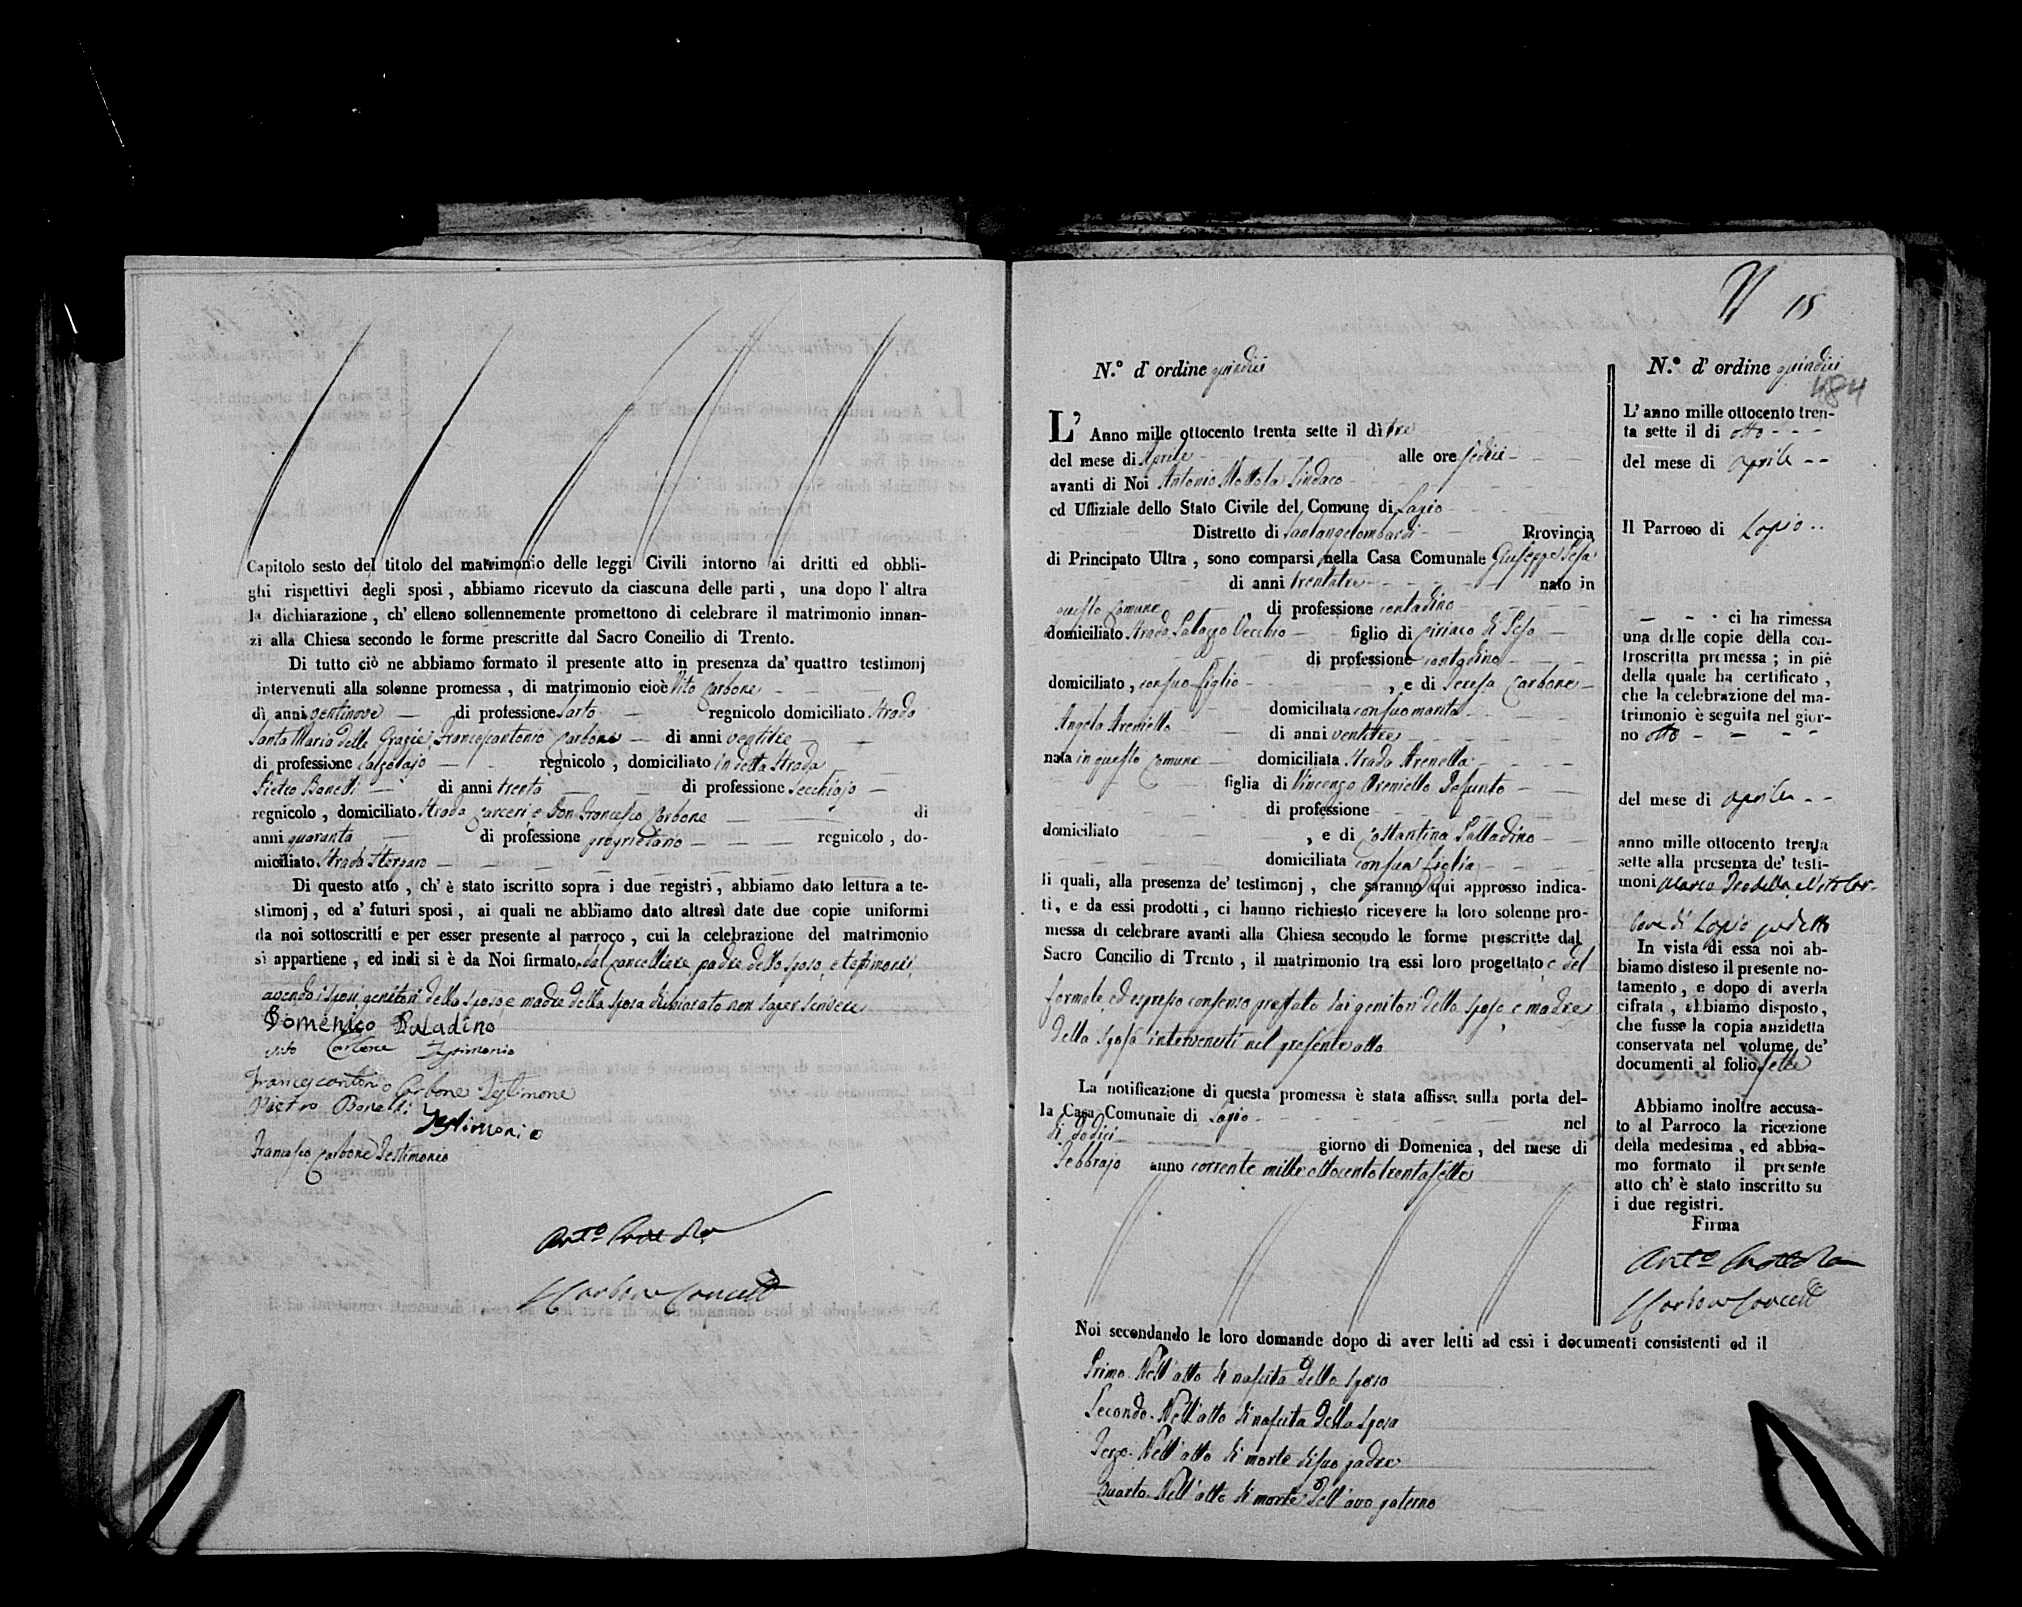 Capitolo sesto del titolo del matrimonio delle leggi Civili intorno ai dritti ed obbli-
ghi rispettivi degli sposi, abbiamo ricevuto da ciascuna delle parti, una dopo l'altra
la dichiarazione, ch' elleno sollennemente promettono di celebrare il matrimonio innan-
zi alla Chiesa secondo le forme prescritte dal Sacro Concilio di Trento.
Di tutto ciò ne abbiamo formato il presente atto in presenza da' quattro testimonj
intervenuti alla solenne promessa, di matrimonio cioè Vito Carbone
di anni ventinove di professione Sarto regnicolo domiciliato Strada
Santa Maria delle Grazie, Francescantonio Carbone di anni ventitre
di professione calzolajo regnicolo, domiciliato in detta Strada
Pietro Bonelli di anni trenta di professione Secchiajo
regnicolo, domiciliato Strada Carceri e Don Francesco Carbone di
anni quaranta di professione proprietario regnicolo, do-
miciliato Strada
Di questo atto, ch' è stato iscritto sopra i due registri, abbiamo dato lettura a te-
stimonj, ed a' futuri sposi, ai quali ne abbiamo dato altresì date due copie uniformi
da noi sottoscritti e per esser presente al parroco, cui la celebrazione del matrimonio
si appartiene, ed indi si è da Noi firmato, dal cancelliere padre dello sposo, e testimonii
avendo i sposi genitori dello sposo, e madre della sposa dichiarato non saper scrivere
Domenico Paladino
Vito Carbone Testimonio
Francescantonio Carbone Testimone
Pietro Bonelli
Testimonio
Francesco Carbone Testimonio
15
N.º d' ordine quindici
L' Anno mille ottocento trenta sette il dì tre
del mese di Aprile alle ore sedici
avanti di Noi Antonio Mottola Sindaco
ed Uffiziale dello Stato Civile del Comune di Lapio
Distretto di Santangelombardi Provincia
di Principato Ultra, sono comparsi nella Casa Comunale Giuseppe
di anni trentatre nato in
questo Comune di professione contadino
domiciliato Strada Palazzo Vecchio figlio di Ciriaco di
di professione contadino
domiciliato, con suo figlio, e di Teresa Carbone
domiciliata con suo marito
Angela Areniello di anni ventitre
nata in questo Comune domiciliata Strada Arenella
figlia di Vincenzo Areniello Defunto
di professione
domiciliato, e di Costantina Palladino
domiciliata con sua figlia
li quali, alla presenza de' testimonj, che saranno qui appresso indica-
ti, e da essi prodotti, ci hanno richiesto ricevere la loro solenne pro-
messa di celebrare avanti alla Chiesa secondo le forme prescritte dal
Sacro Concilio di Trento, il matrimonio tra essi loro progettato, e del
formale, ed espresso consenso prestato dai genitori dello sposo, e madre
della sposa intervenuti nel presente atto
La notificazione di questa promessa è stata affissa sulla porta del-
la Casa Comunale di Lapio nel
dì dodici giorno di Domenica, del mese di
Febbrajo anno corrente mille ottocento trentasette
Noi secondando le loro domande dopo di aver letti ad essi i documenti consistenti ed il
Primo. Nell'atto di nascita dello sposo
Secondo. Nell'atto di nascita della sposa
Terzo. Nell'atto di morte di suo padre
Quarto. Nell'atto di morte dell'avo paterno
N.º d' ordine quindici
484
L' anno mille ottocento tren-
ta sette il di otto
del mese di Aprile
Il Parroco di Lapio
ci ha rimessa
una delle copie della con-
troscritta promessa; in piè
della quale ha certificato,
che la celebrazione del ma-
trimonio è seguita nel gior-
no otto
del mese di Aprile
anno mille ottocento trenta
sette alla presenza de' testi-
moni Marco e Vito Car-
bone di Lapio
In vista di essa noi ab-
biamo disteso il presente no-
tamento, e dopo di averla
cifrata, abbiamo disposto,
che fusse la copia anzidetta
conservata nel volume de'
documenti al folio sette
Abbiamo inoltre accusa-
to al Parroco la ricezione
della medesima, ed abbia-
mo formato il presente
atto ch' è stato inscritto su
i due registri.
Firma